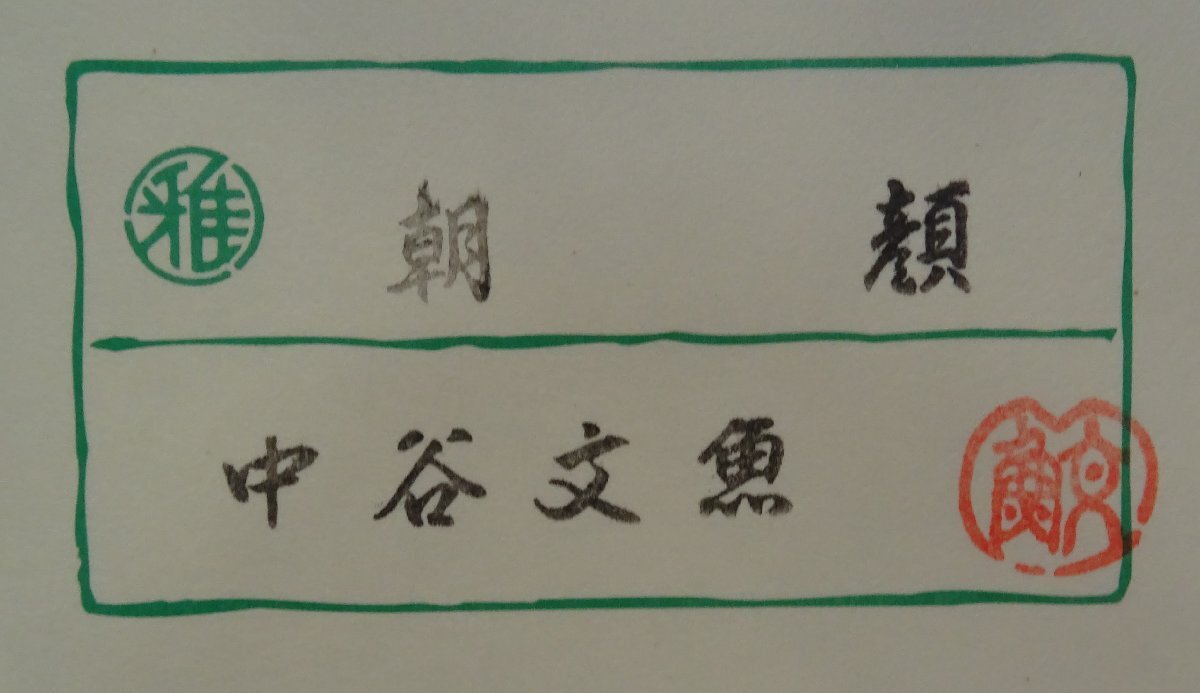 雅 朝 顔
中谷文魚